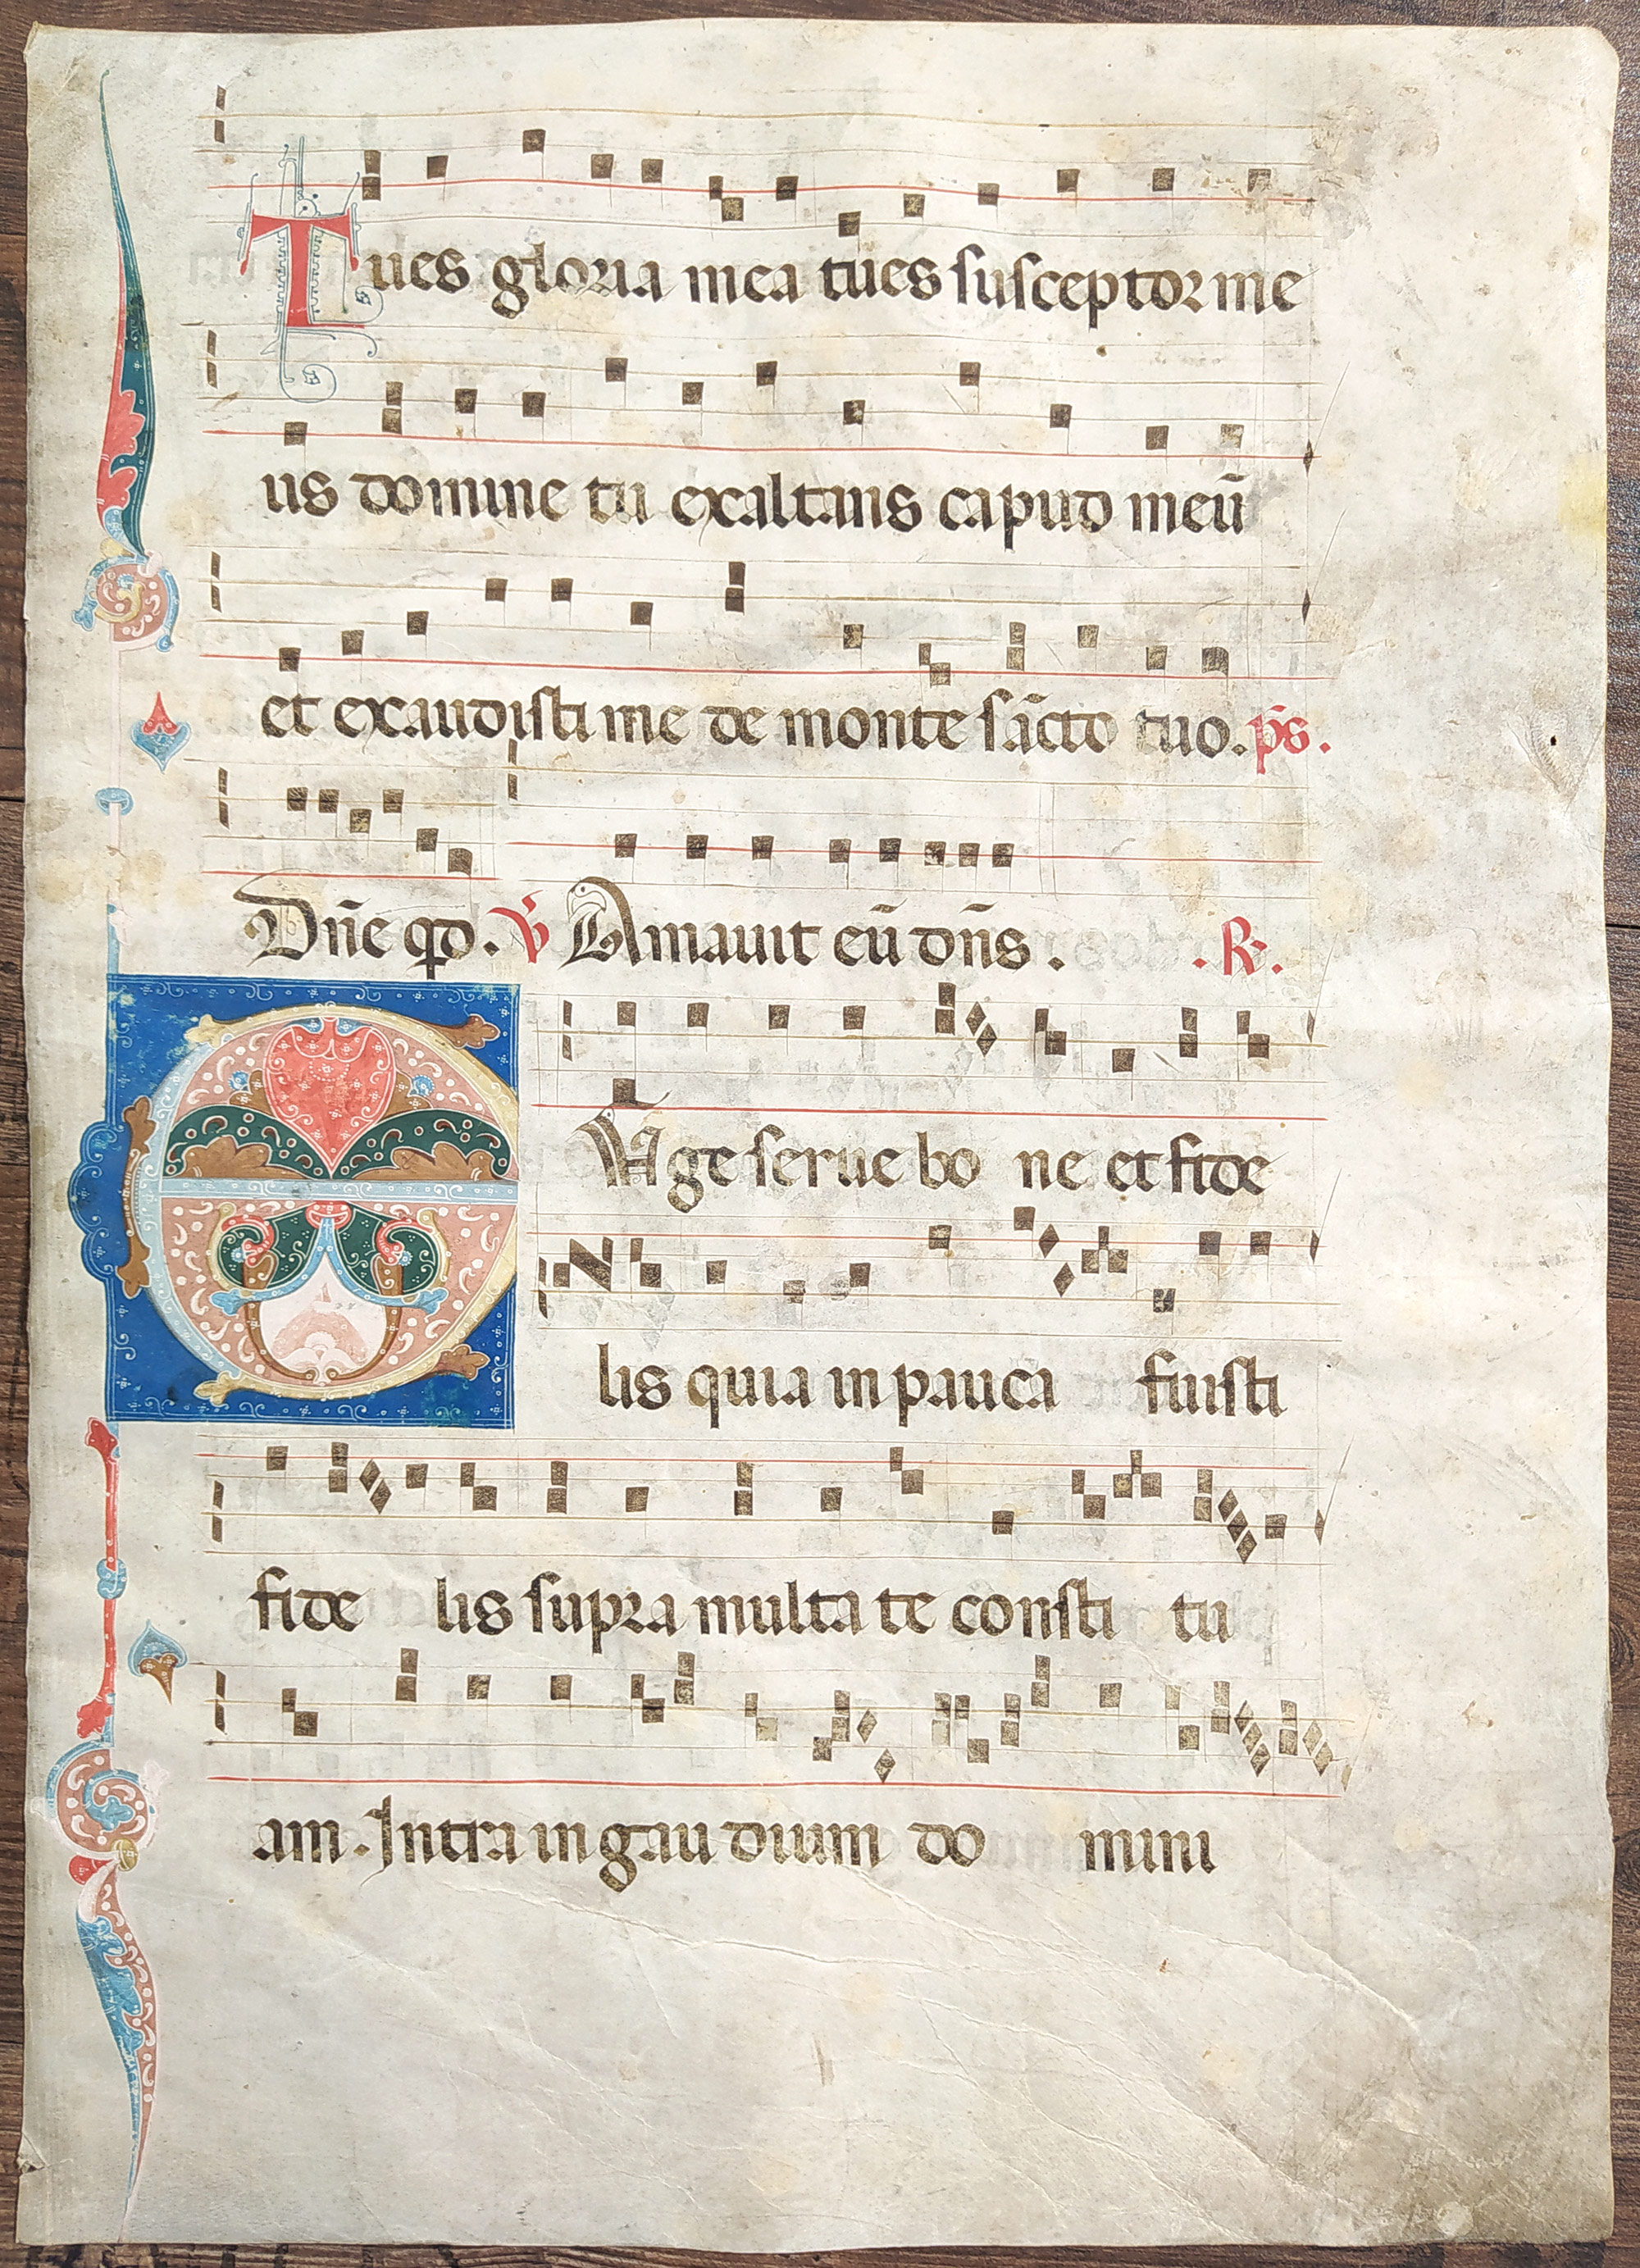 Tu es gloria mea tu es susceptor me
us domine tu exaltans capud meū
et exaudisti me de monte sācto tuo. p̄s.
Dn̄e qd. V̄ Amauit eū dn̄s. . R̄.
EUge serue bo ne et fide
lis quia in pauca fuisti
fide lis supra multa te consti tu
am. Intra in gau dium do mini